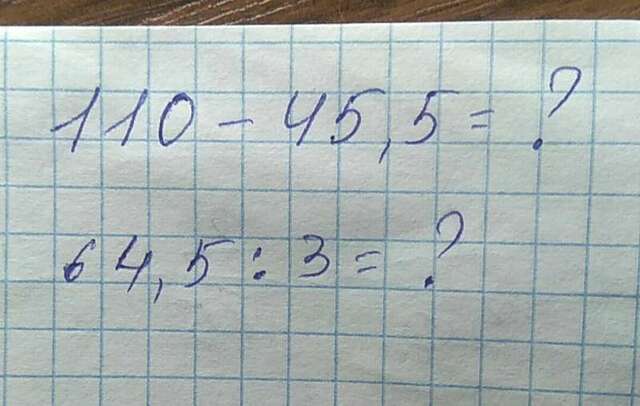 110 - 45,5 = ?
64,5 : 3 = ?